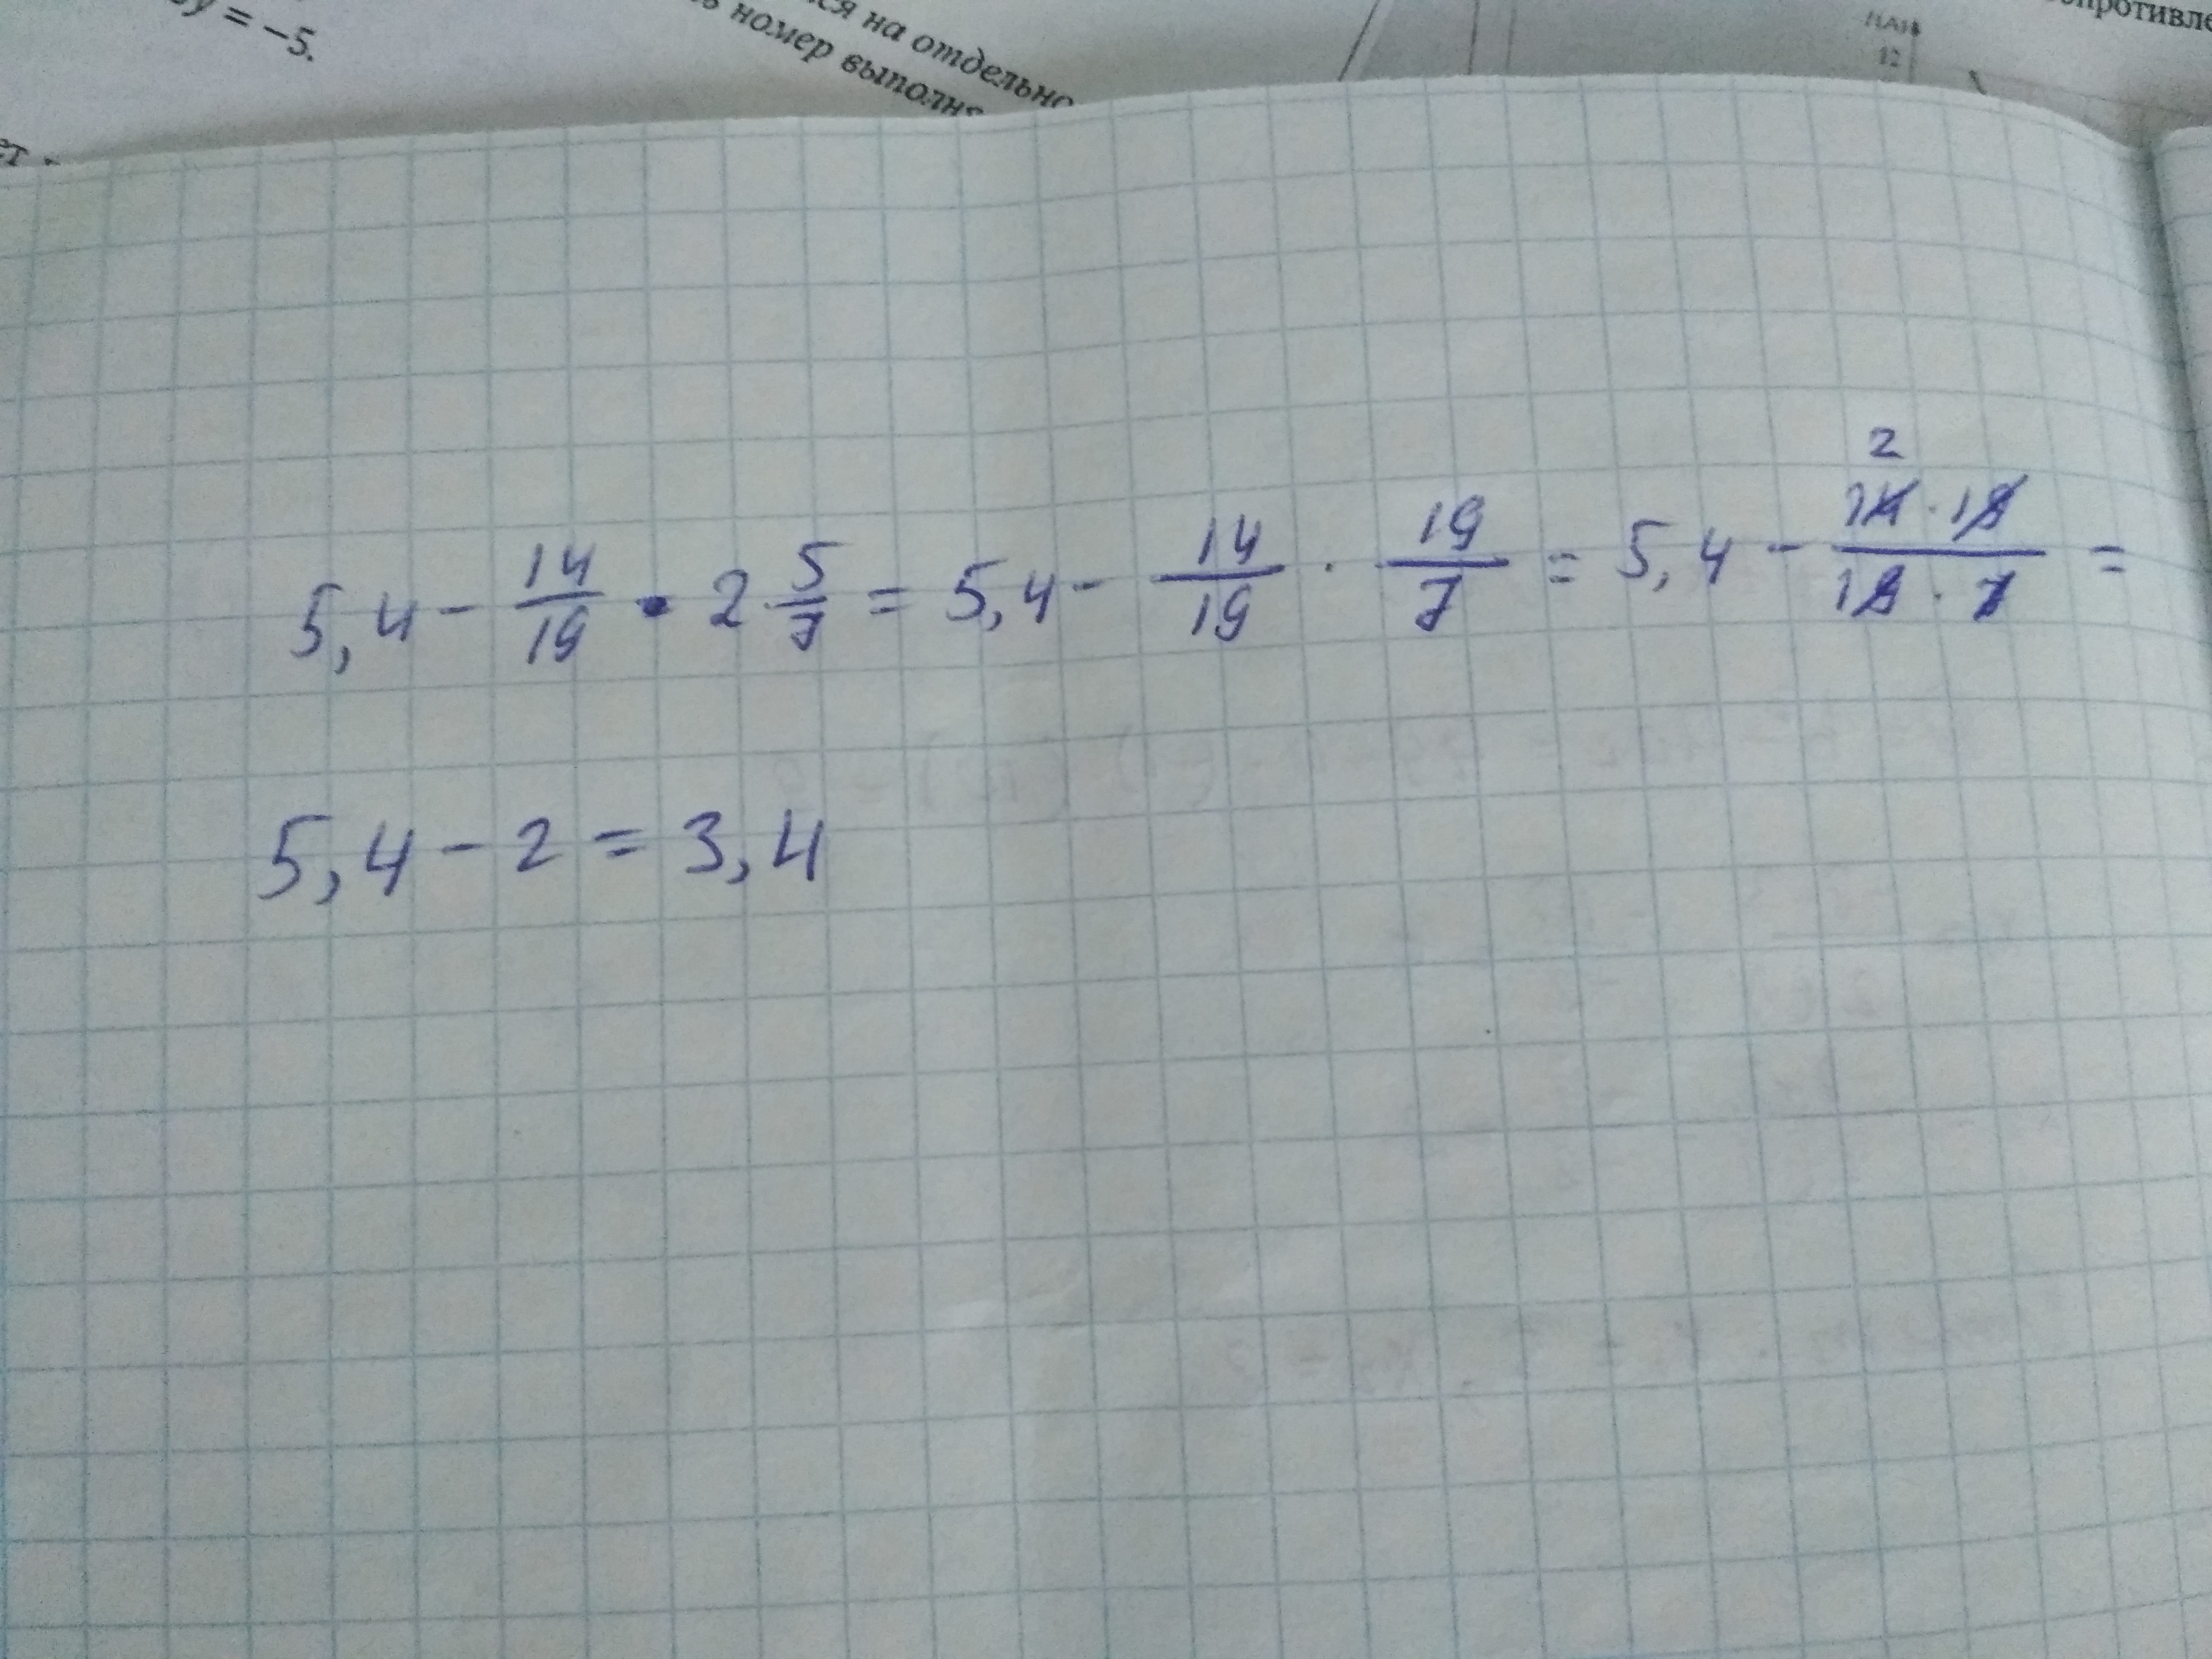 y = −5.
на отдельно
номер выполня
12
5,4 - 14/19 · 2 5/7 = 5,4 - 14/19 · 19/7 = 5,4 - 14 · 19/19 · 7 =
2
5,4 - 2 = 3,4